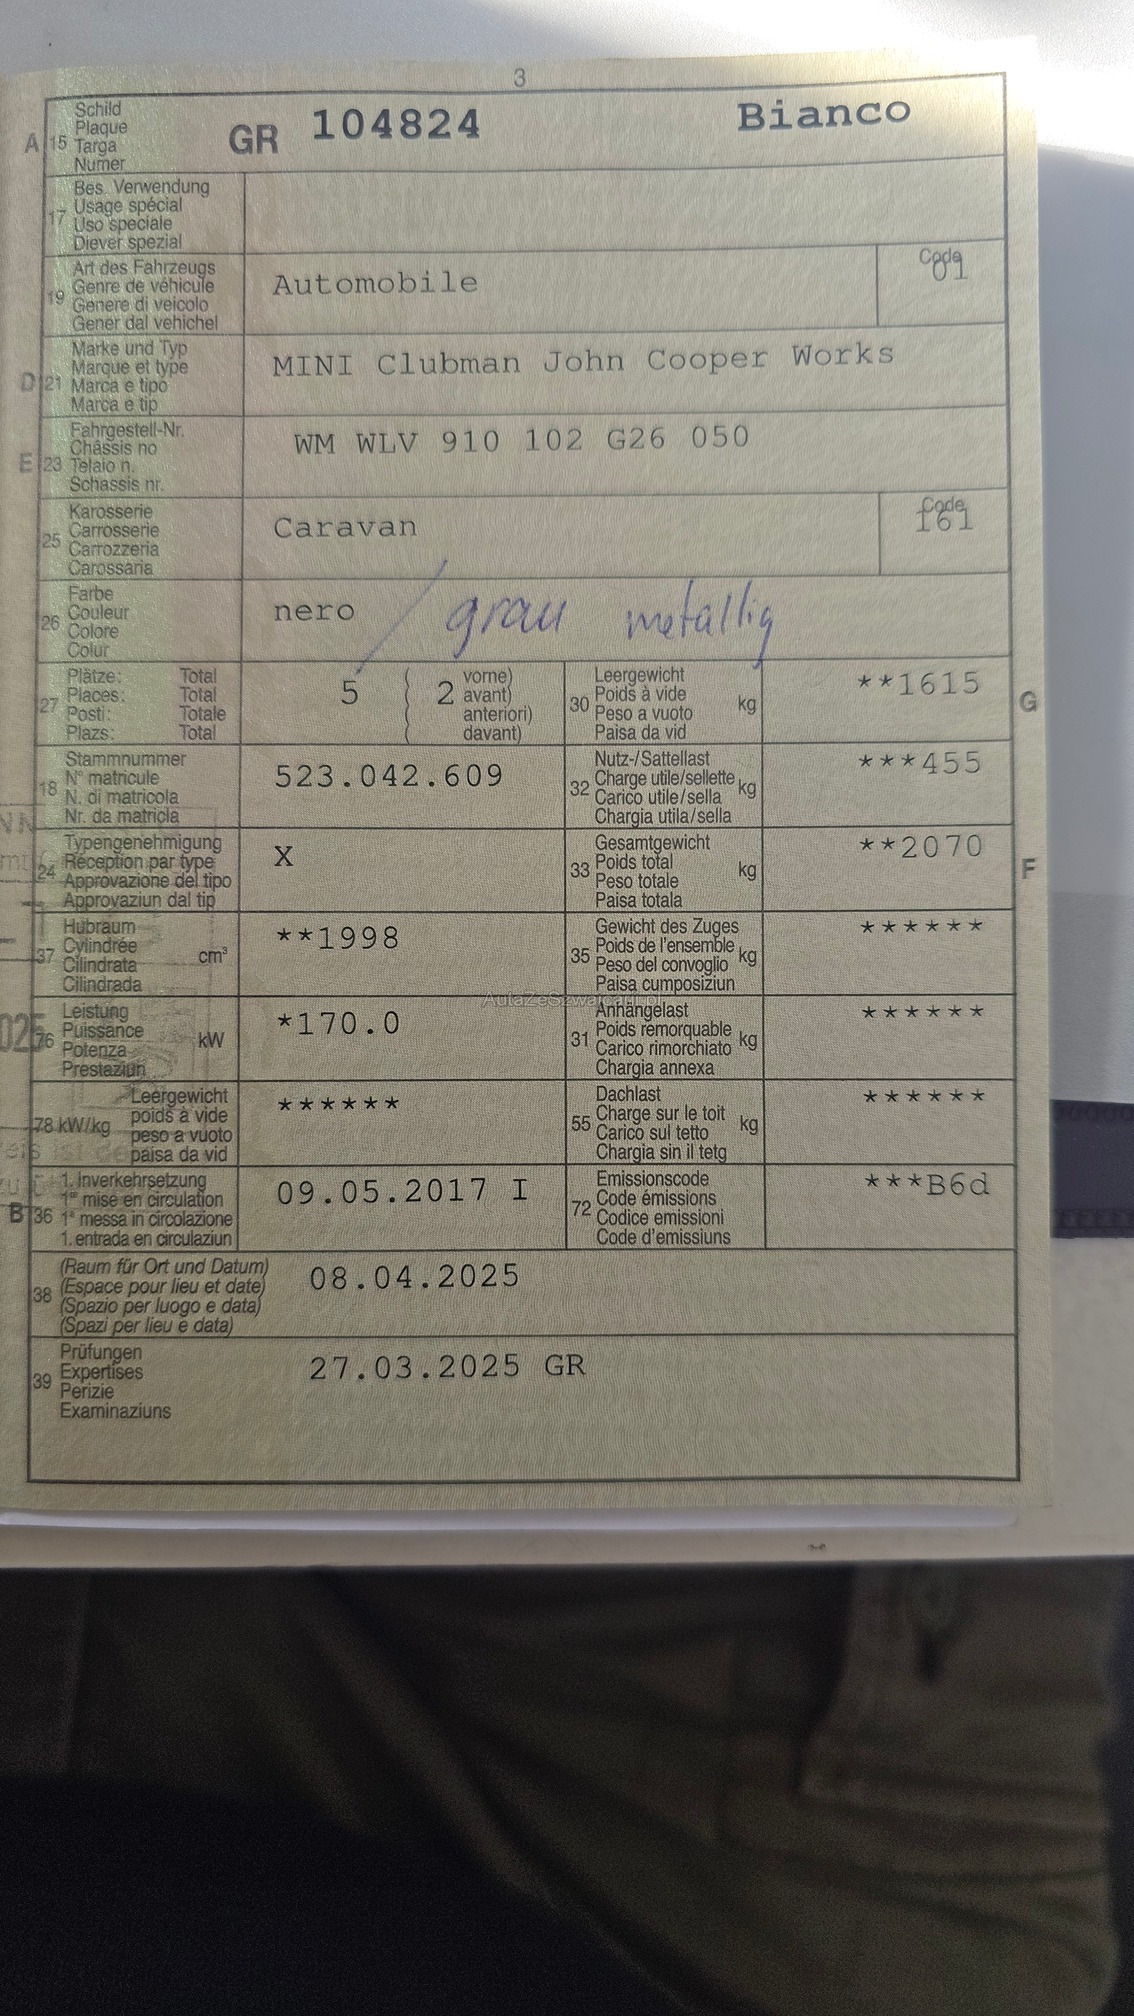 3
A 15 Schild
Plaque
Targa
Numer
GR 104824 Bianco
17 Bes. Verwendung
Usage spécial
Uso speciale
Diever spezial
19 Art des Fahrzeugs
Genre de véhicule
Genere di veicolo
Gener dal vehichel
Automobile
Code
01
D 21 Marke und Typ
Marque et type
Marca e tipo
Marca e tip
MINI Clubman John Cooper Works
E 23 Fahrgestell-Nr.
Châssis no
Telaio n.
Schassis nr.
WM WLV 910 102 G26 050
25 Karosserie
Carrosserie
Carrozzeria
Carossaria
Caravan
Code
161
26 Farbe
Couleur
Colore
Colur
nero / grau metallig
27 Plätze: Total
Places: Total
Posti: Totale
Plazs: Total
5 ( 2 vorne)
avant)
anteriori)
davant)
30 Leergewicht
Poids à vide
Peso a vuoto
Paisa da vid
kg
**1615
G
18 Stammnummer
N° matricule
N. di matricola
Nr. da matricla
523.042.609
32 Nutz-/Sattellast
Charge utile/sellette
Carico utile/sella
Chargia utila/sella
kg
***455
24 Typengenehmigung
Réception par type
Approvazione del tipo
Approvaziun dal tip
X
33 Gesamtgewicht
Poids total
Peso totale
Paisa totala
kg
**2070
F
37 Hubraum
Cylindrée
Cilindrata
Cilindrada
cm³
**1998
35 Gewicht des Zuges
Poids de l'ensemble
Peso del convoglio
Paisa cumposiziun
kg
******
AutaZeSzwajcarii.pl
76 Leistung
Puissance
Potenza
Prestaziun
kW
*170.0
31 Anhängelast
Poids remorquable
Carico rimorchiato
Chargia annexa
kg
******
78 kW/kg Leergewicht
poids à vide
peso a vuoto
paisa da vid
******
55 Dachlast
Charge sur le toit
Carico sul tetto
Chargia sin il tetg
kg
******
B 36 1. Inverkehrsetzung
1re mise en circulation
1a messa in circolazione
1. entrada en circulaziun
09.05.2017 I
72 Emissionscode
Code émissions
Codice emissioni
Code d'emissiuns
***B6d
38 (Raum für Ort und Datum)
(Espace pour lieu et date)
(Spazio per luogo e data)
(Spazi per lieu e data)
08.04.2025
39 Prüfungen
Expertises
Perizie
Examinaziuns
27.03.2025 GR